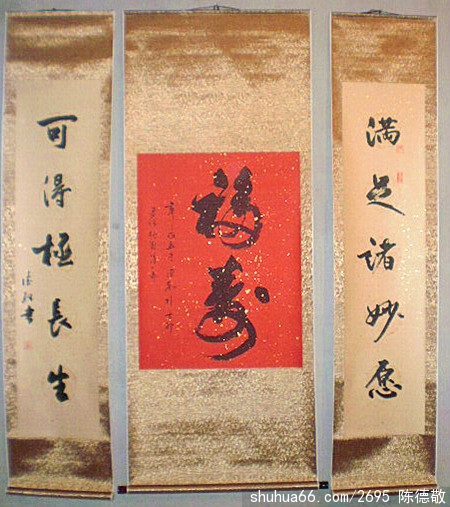 满足诸妙愿
福寿
可得極長生
德敬書
shuhua66.com/2695 陈德敬